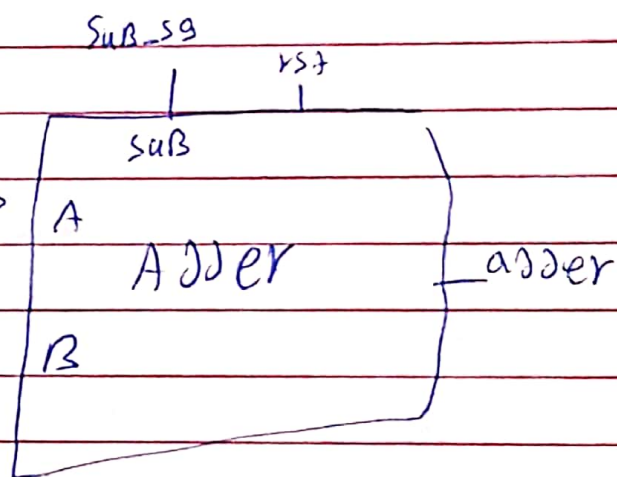 SuB_sg
rst
SuB
A
Adder adder
B